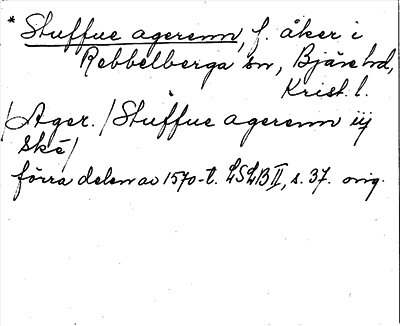 * Stuffue agerenn, f. åker i
Rebbelberga sn, Bjäre hd,
Krist. l.
/Ager./ Stuffue agerenn iij
skē/
förra delen av 1570-t. LSLB II, s. 37. orig.